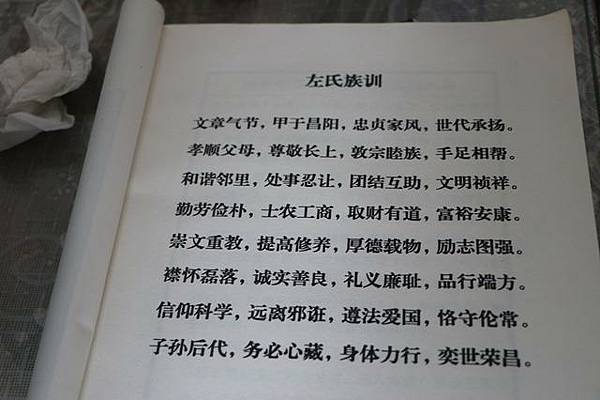 左氏族训
文章气节，甲于昌阳，忠贞家风，世代承扬。
孝顺父母，尊敬长上，敦宗睦族，手足相帮。
和谐邻里，处事忍让，团结互助，文明祯祥。
勤劳俭朴，士农工商，取财有道，富裕安康。
崇文重教，提高修养，厚德载物，励志图强。
襟怀磊落，诚实善良，礼义廉耻，品行端方。
信仰科学，远离邪诳，遵法爱国，恪守伦常。
子孙后代，务必心藏，身体力行，奕世荣昌。